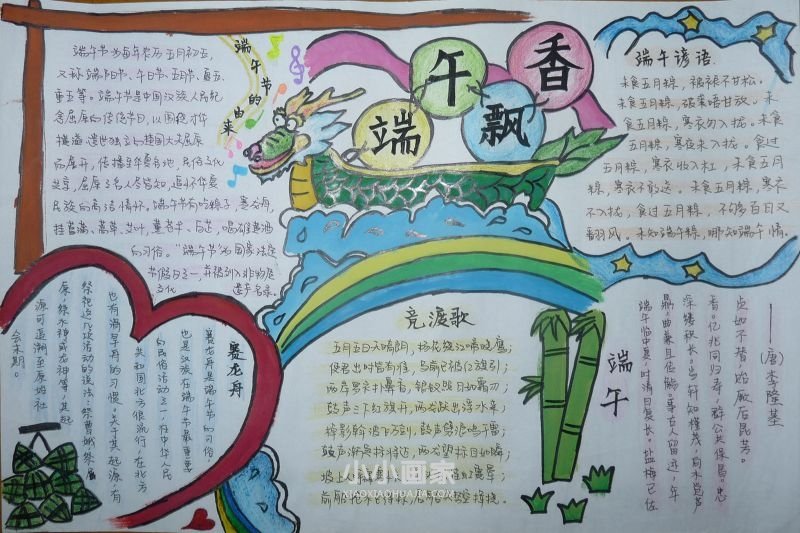 端午飘香
端午节的由来
端午节为每年农历五月初五，
又称端阳节、午日节、五月节、
重五等。端午节是中国汉族人民纪
念屈原的传统节日，以围绕才华
横溢、遗世独立的楚国大夫屈原
而展开，传播至华夏各地，民俗文化
共享，屈原之名人尽皆知，追怀华夏
民族的高洁情怀。端午节有吃粽子，赛龙舟，
挂菖蒲、蒿草、艾叶，薰苍术、白芷，喝雄黄酒
的习俗。“端午节”为国家法定
节假日之一，并被列入非物质
文化遗产名录。
端午谚语
未食五月粽，被褥不甘松。
未食五月粽，破裘唔甘放。未
食五月粽，寒衣勿入拢。未食
五月粽，寒衣未入拢。食过
五月粽，寒衣收入杠，未食五月
粽，寒衣不敢送。未食五月粽，寒衣
不入拢，食过五月粽，不够百日又
翻风。未知端午粽，哪知端午情。
赛龙舟
赛龙舟是端午节的习俗
也是汉族在端午节最重要
的民俗活动之一，在中华人民
共和国北方很流行，在北方
也有满旱舟的习俗。关于其起源，有
祭祀这几次活动的说法：祭曹娥，祭屈
原，祭水神或龙神等，其起
源可追溯至原始社
会末期。
竞渡歌
五月五日天晴朗，杨花绕江啼晓鹰；
使君出时皆有准，马前已被红旗引；
两岸罗衣扑鼻香，银钗照日如霜刃；
鼓声三下红旗开，两龙跃出浮水来；
棹影斡波飞万剑，鼓声劈浪鸣千雷；
鼓声渐急标将近，两龙望标目如瞬；
前船抢水已得标，后船失势空挥桡。
端午
端午临中夏，时清日复长。盐梅已佐
鼎，曲糵且传觞。事古人留迹，年
深缕积长。当轩知槿茂，向水觉芦
香。亿兆同归寿，群公共保昌。忠
贞如不替，贻厥后昆芳。
——（唐）李隆基
小小画家
XIAOXIAOHUAJIA.COM